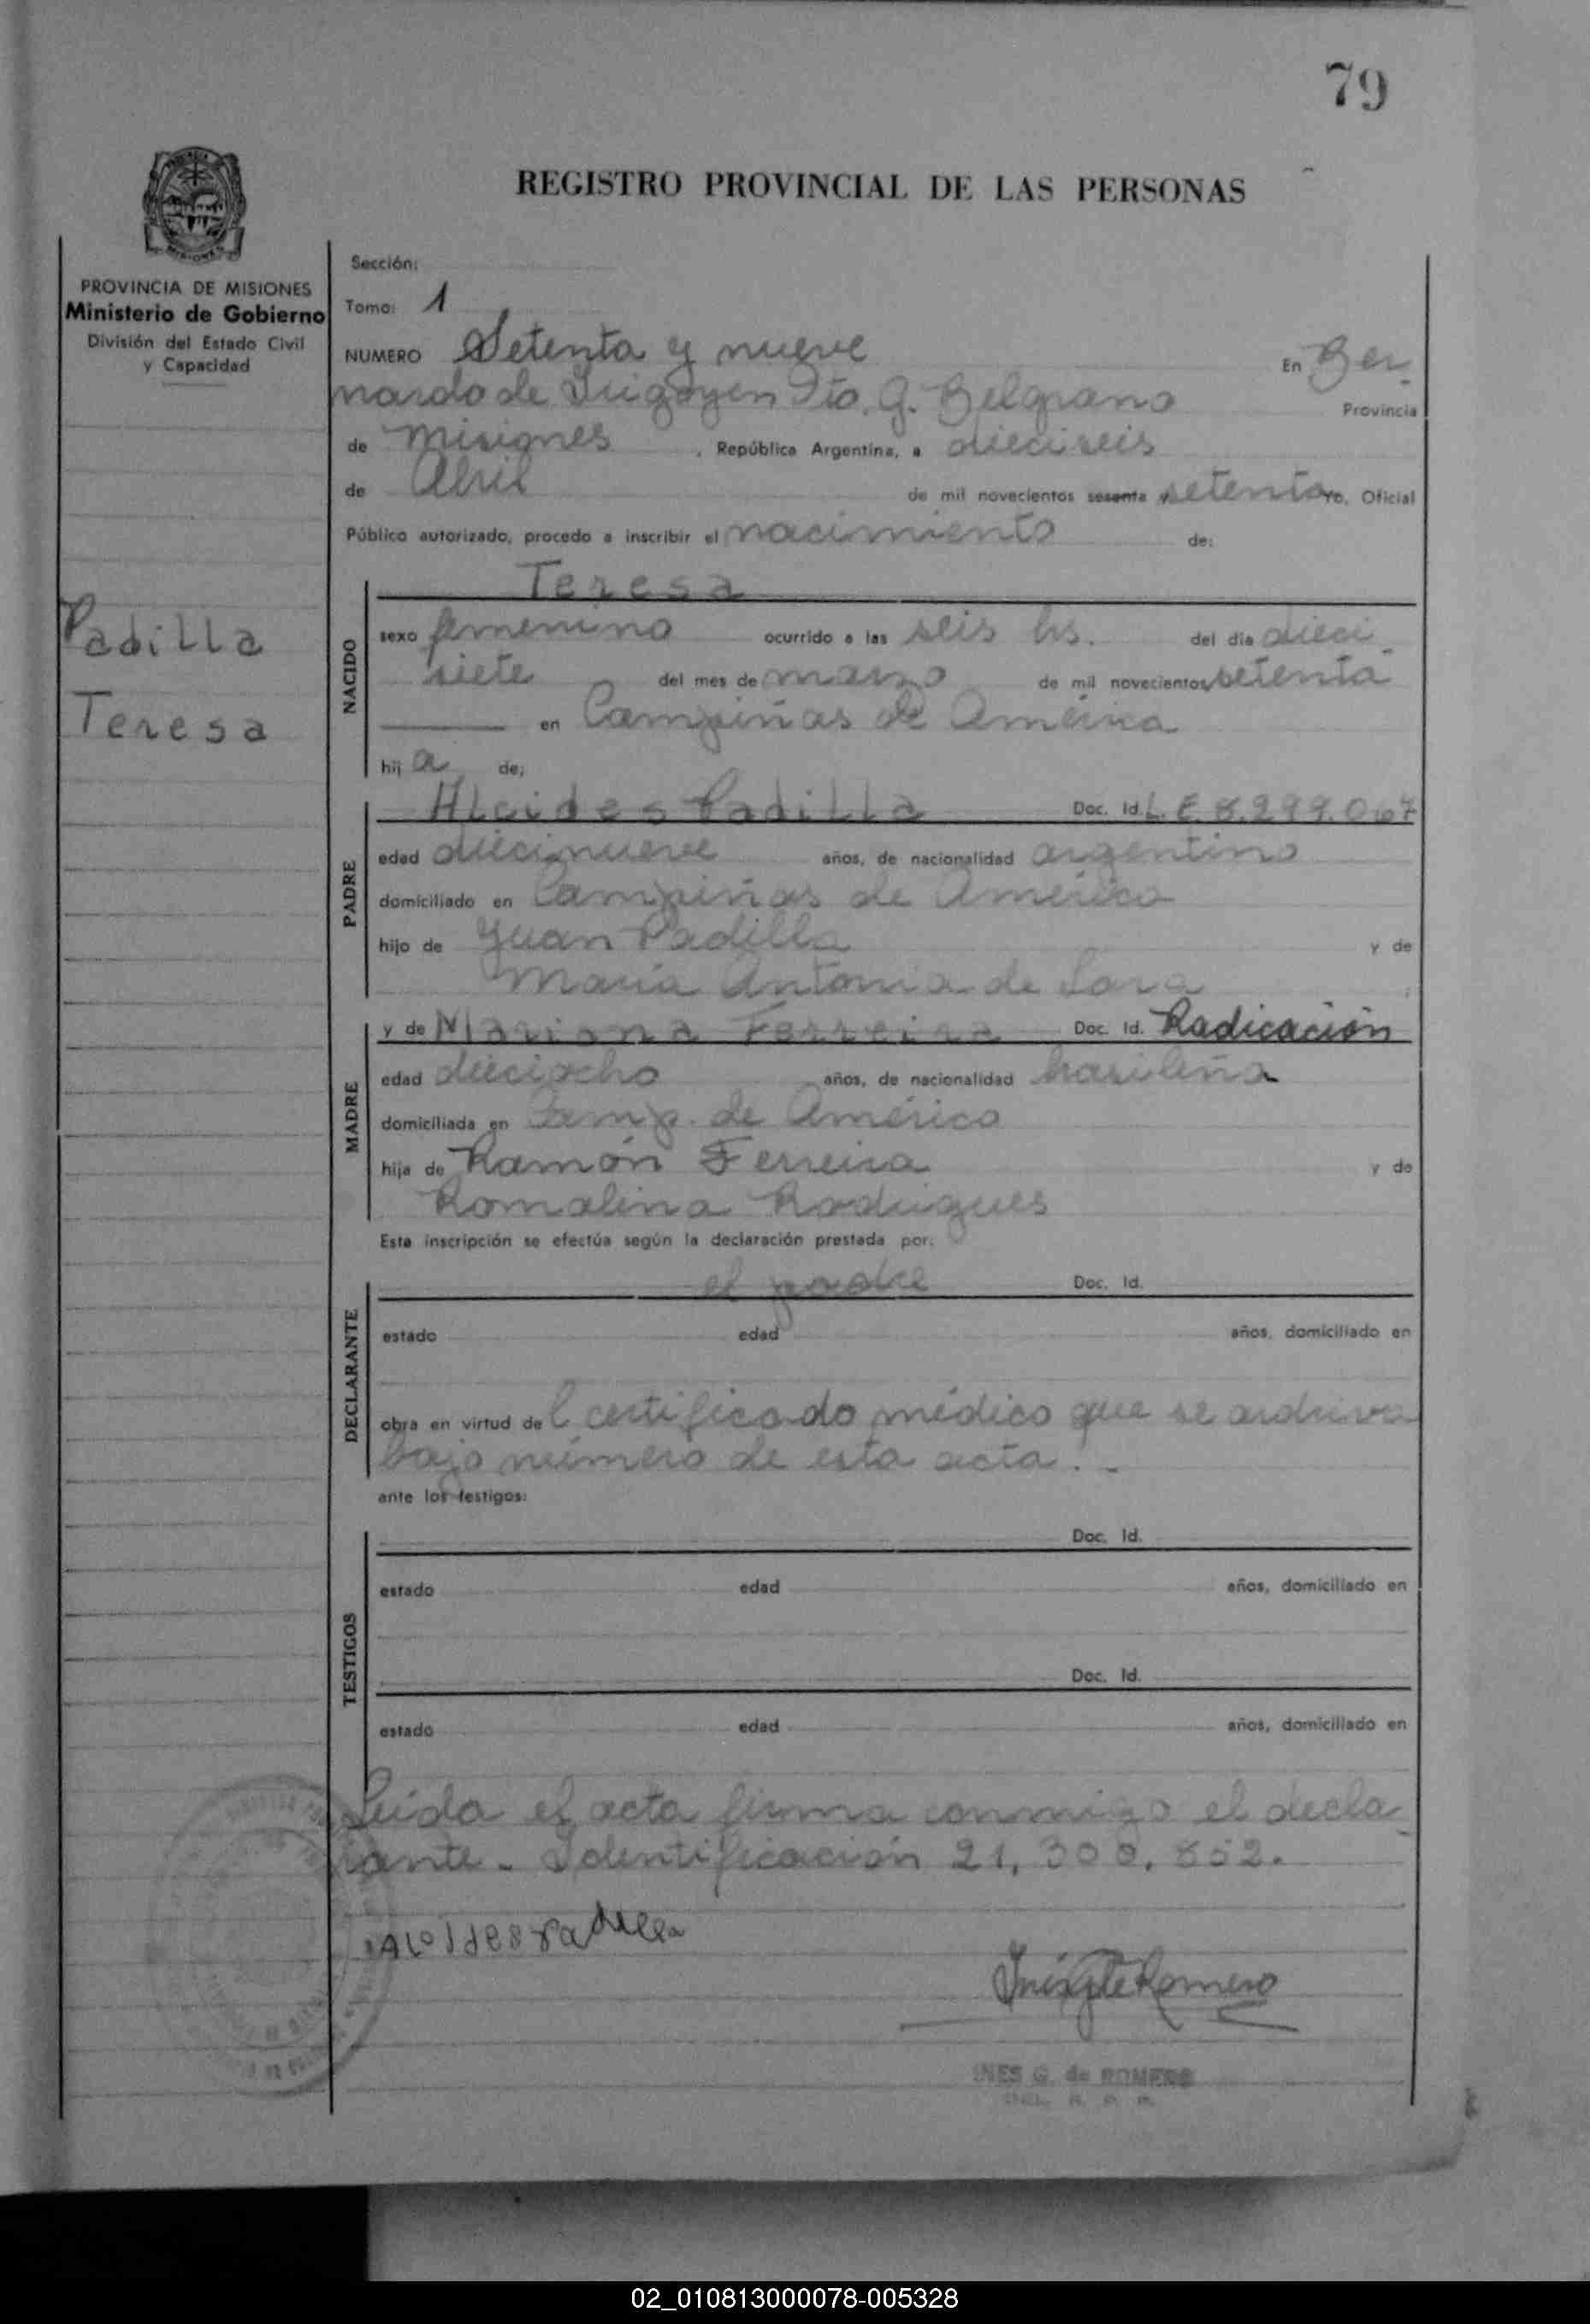 79
REGISTRO PROVINCIAL DE LAS PERSONAS
PROVINCIA DE MISIONES
Ministerio de Gobierno
División del Estado Civil
y Capacidad
Padilla
Teresa
Sección:
Tomo: 1
NUMERO Setenta y nueve En Ber-
nardo de Irigoyen Dto. G. Belgrano Provincia
de Misiones, República Argentina, a dieciseis
de Abril de mil novecientos sesenta y setenta Yo, Oficial
Público autorizado, procedo a inscribir el nacimiento de:
NACIDO
Teresa
sexo femenino ocurrido a las seis hs. del día dieci-
siete del mes de marzo de mil novecientos setenta
en Campiñas de América
hij a de:
PADRE
Alcides Padilla Doc. Id. L.E. 8.299.067
edad diecinueve años, de nacionalidad argentino
domiciliado en Campiñas de América
hijo de Juan Padilla y de
María Antonia de Lara
MADRE
y de Mariana Ferreira Doc. Id. Radicación
edad dieciocho años, de nacionalidad brasileña
domiciliada en Camp. de América
hija de Ramón Ferreira y de
Romalina Rodrigues
Esta inscripción se efectúa según la declaración prestada por:
DECLARANTE
el padre Doc. Id.
estado edad años, domiciliado en
obra en virtud del certificado médico que se archiva
bajo número de esta acta.-
ante los testigos:
TESTIGOS
Doc. Id.
estado edad años, domiciliado en
Doc. Id.
estado edad años, domiciliado en
Leída el acta firma conmigo el decla-
rante. Identificación 21.300.852.
Alcides Padilla
Inés G de Romero
INES G. de ROMERO
02_010813000078-005328